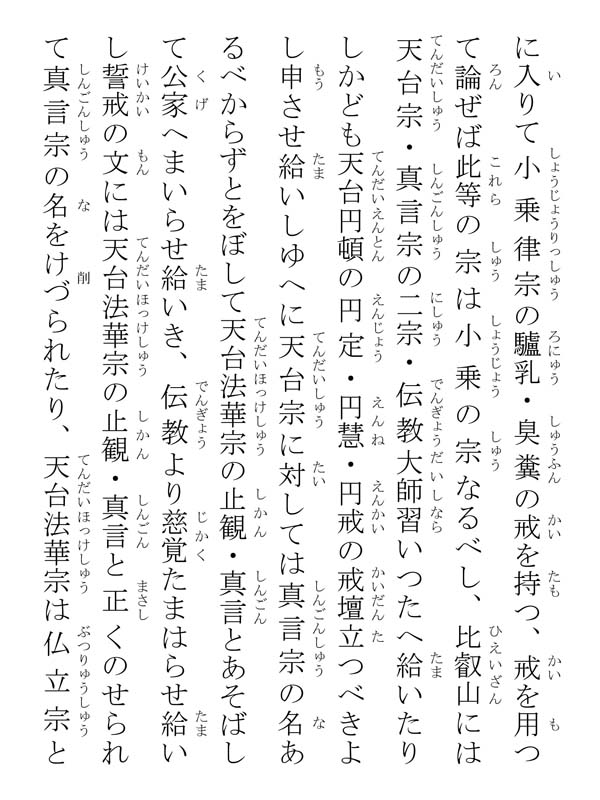 に入りて小乗律宗の驢乳・臭糞の戒を持つ、戒を用つ
て論ぜば此等の宗は小乗の宗なるべし、比叡山には
天台宗・真言宗の二宗・伝教大師習いつたへ給いたり
しかども天台円頓の円定・円慧・円戒の戒壇立つべきよ
し申させ給いしゆへに天台宗に対しては真言宗の名あ
るべからずとをぼして天台法華宗の止観・真言とあそばし
て公家へまいらせ給いき、伝教より慈覚たまはらせ給い
し誓戒の文には天台法華宗の止観・真言と正くのせられ
て真言宗の名をけづられたり、天台法華宗は仏立宗と